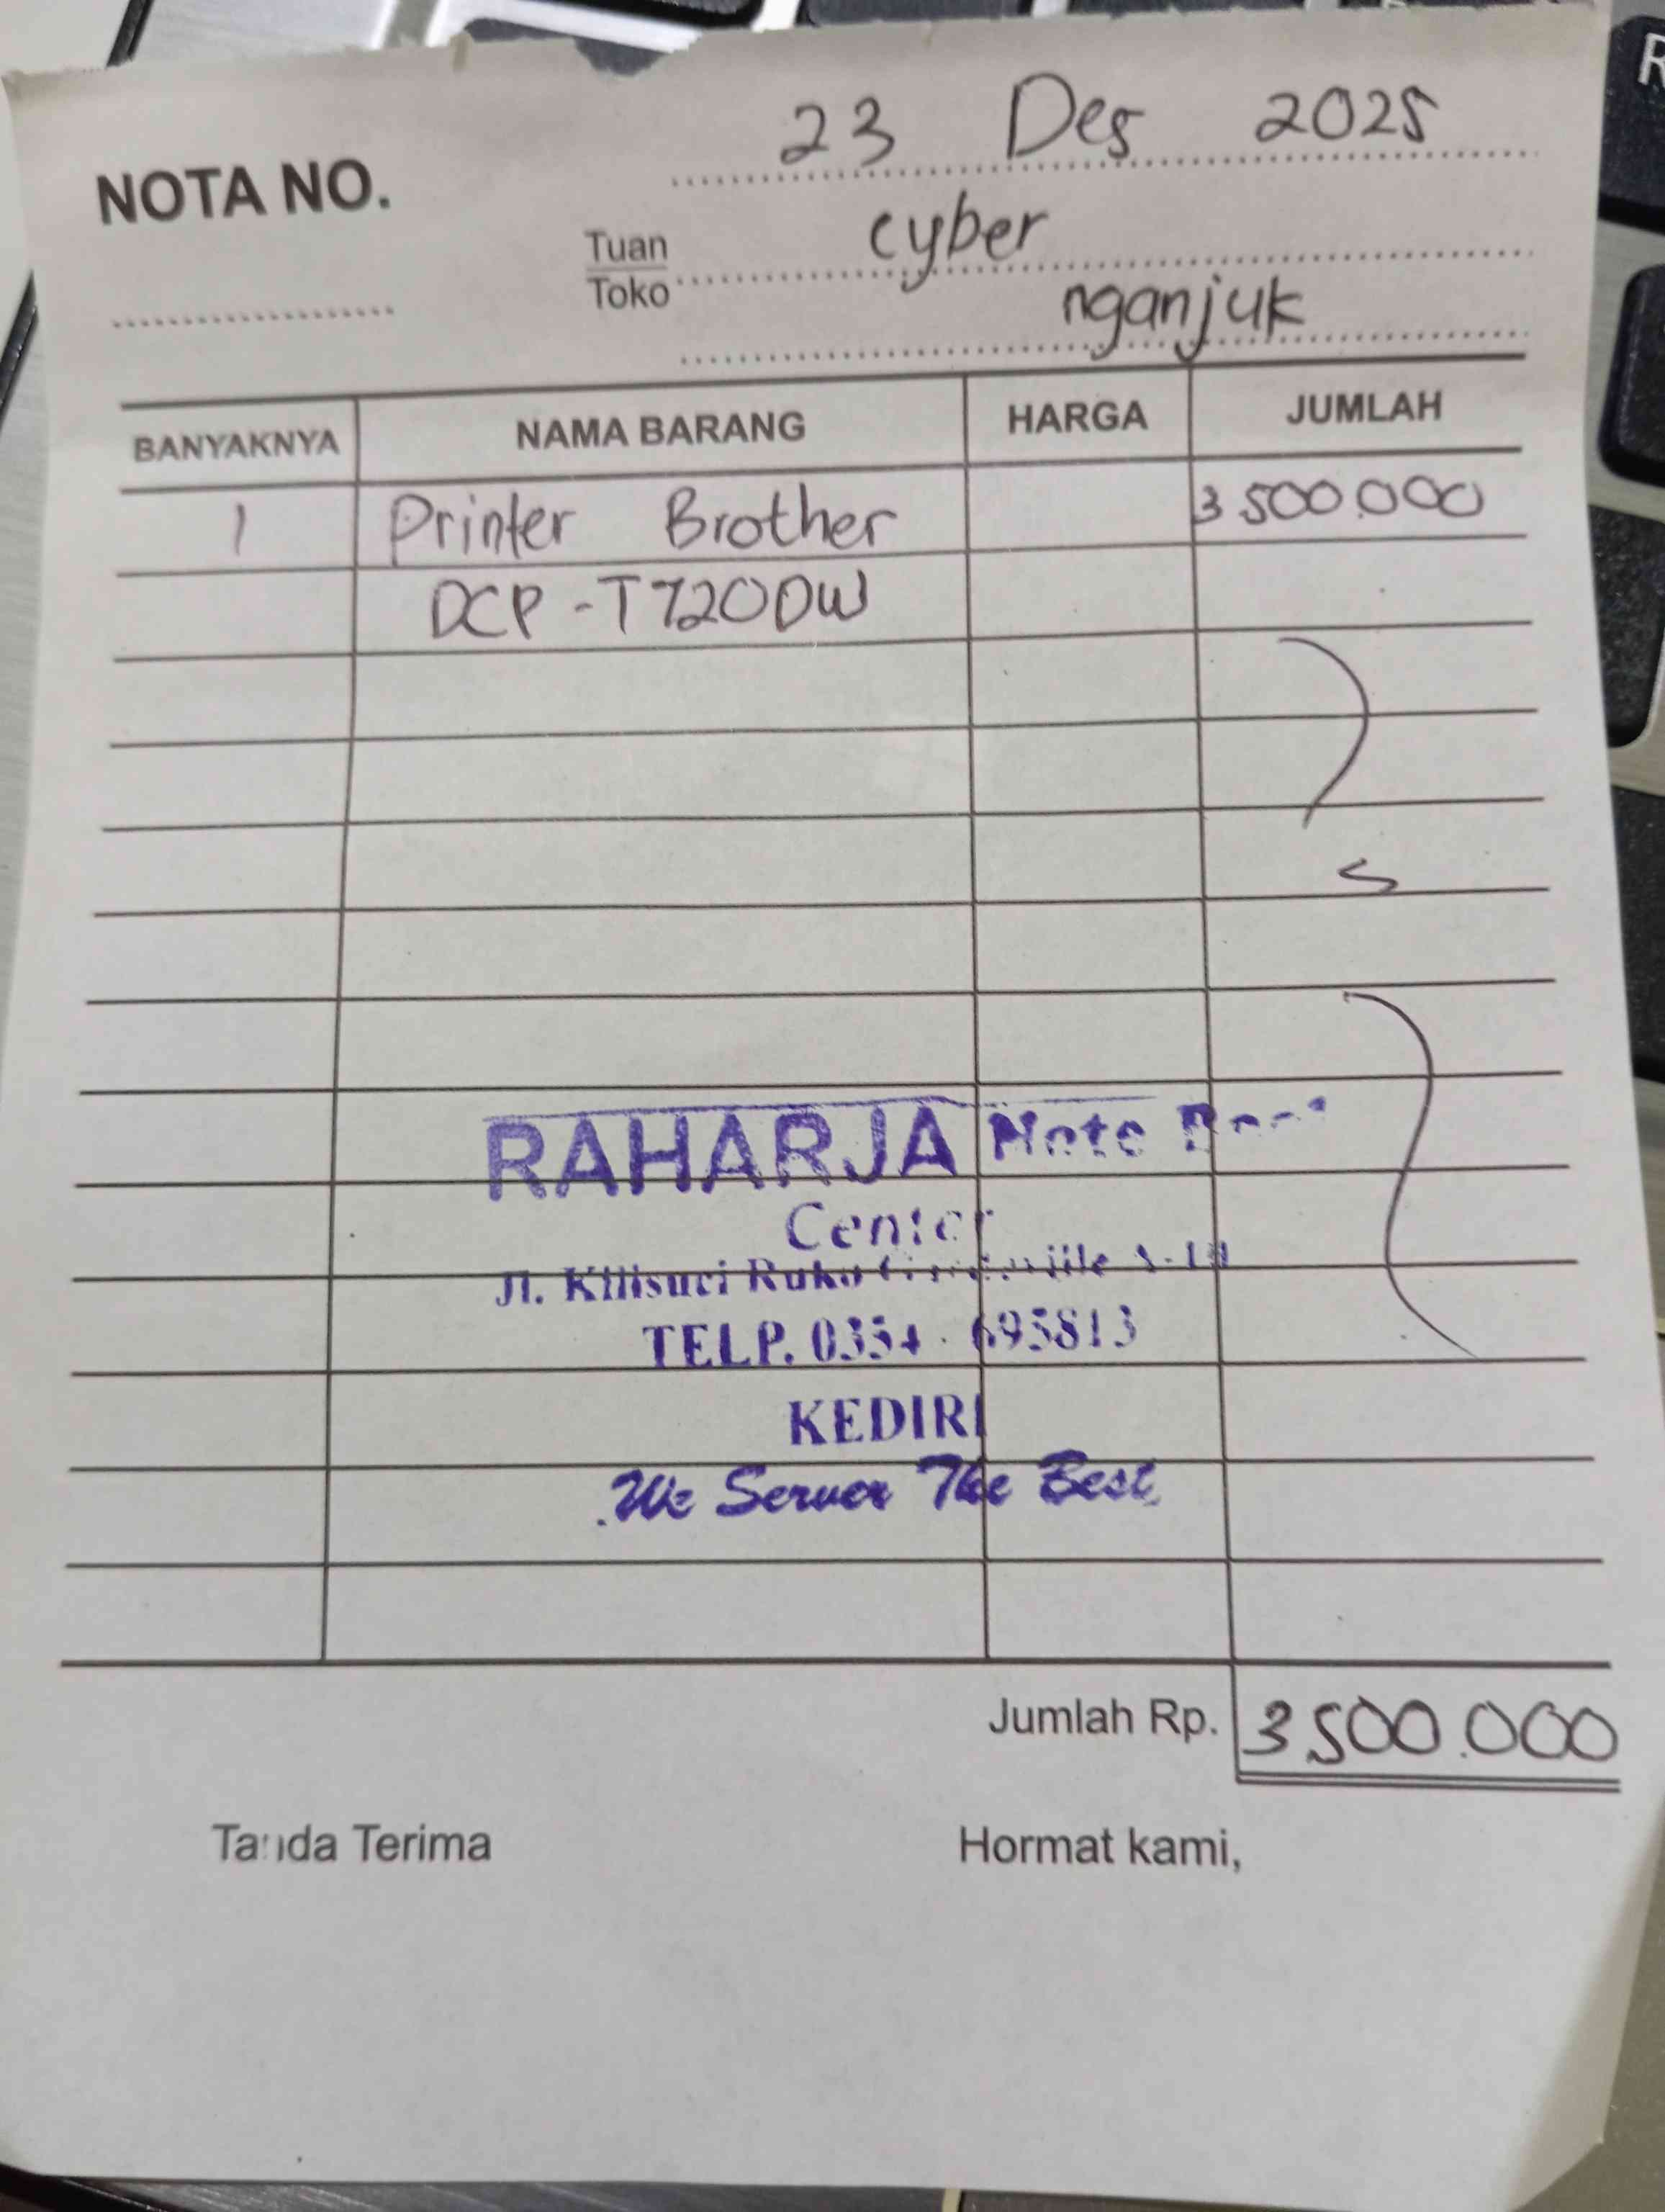 23 Des 2025
NOTA NO.
Tuan
Toko
cyber
nganjuk
BANYAKNYA NAMA BARANG HARGA JUMLAH
1 Printer Brother 3.500.000
DCP-T720DW
RAHARJA Note
Center
Jl. Kilisuci Ruko
TELP. 0354 - 695813
KEDIRI
We Server The Best
Jumlah Rp. 3.500.000
Tanda Terima Hormat kami,